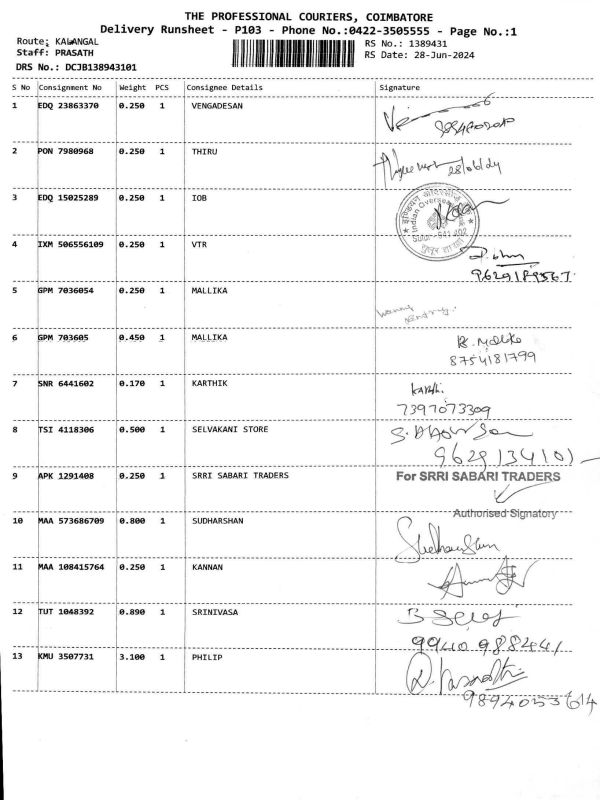 THE PROFESSIONAL COURIERS, COIMBATORE
Delivery Runsheet - P103 - Phone No.:0422-3505555 - Page No.:1
Route: KALANGAL RS No.: 1389431
Staff: PRASATH RS Date: 28-Jun-2024
DRS No.: DCJB138943101
S No Consignment No Weight PCS Consignee Details Signature
1 EDQ 23863370 0.250 1 VENGADESAN
2 PON 7980968 0.250 1 THIRU
28/06/24
3 EDQ 15025289 0.250 1 IOB
Indian Overseas
4 IXM 506556109 0.250 1 VTR
9629189567
5 GPM 7036054 0.250 1 MALLIKA
6 GPM 703605 0.450 1 MALLIKA
8754181799
7 SNR 6441602 0.170 1 KARTHIK
7397073309
8 TSI 4118306 0.500 1 SELVAKANI STORE
9629134101
9 APK 1291408 0.250 1 SRRI SABARI TRADERS For SRRI SABARI TRADERS
Authorised Signatory
10 MAA 573686709 0.800 1 SUDHARSHAN
11 MAA 108415764 0.250 1 KANNAN
12 TUT 1048392 0.890 1 SRINIVASA
9940988441
13 KMU 3507731 3.100 1 PHILIP
9894053614